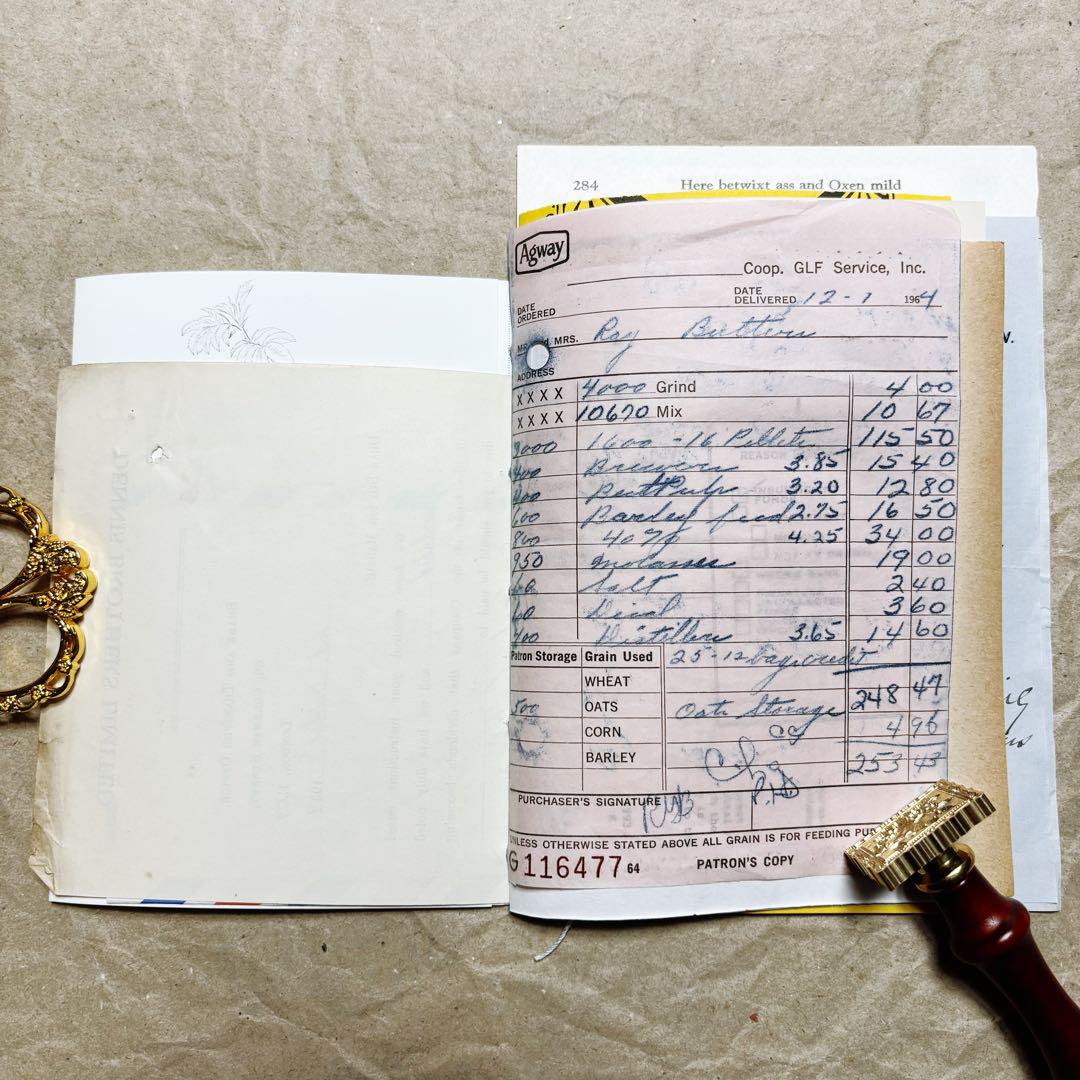 284 Here betwixt ass and Oxen mild
Agway
Coop. GLF Service, Inc.
DATE ORDERED
DATE DELIVERED 12-1 1964
MRS. Ray
ADDRESS
X X X X 4000 Grind 4 00
X X X X 10670 Mix 10 67
1600 - 16 Pellets 115 50
400 Brewers 3.85 15 40
400 Beet Pulp 3.20 12 80
600 Barley feed 2.75 16 50
800 40% 4.25 34 00
950 Molasses 19 00
Salt 2 40
60 Dical 3 60
400 Distillers 3.65 14 60
Patron Storage Grain Used 25-12 Bag credit
WHEAT
500 OATS 248 47
Oats Storage
CORN 4 96
BARLEY 253 43
PURCHASER'S SIGNATURE
UNLESS OTHERWISE STATED ABOVE ALL GRAIN IS FOR FEEDING
G 116477 64 PATRON'S COPY